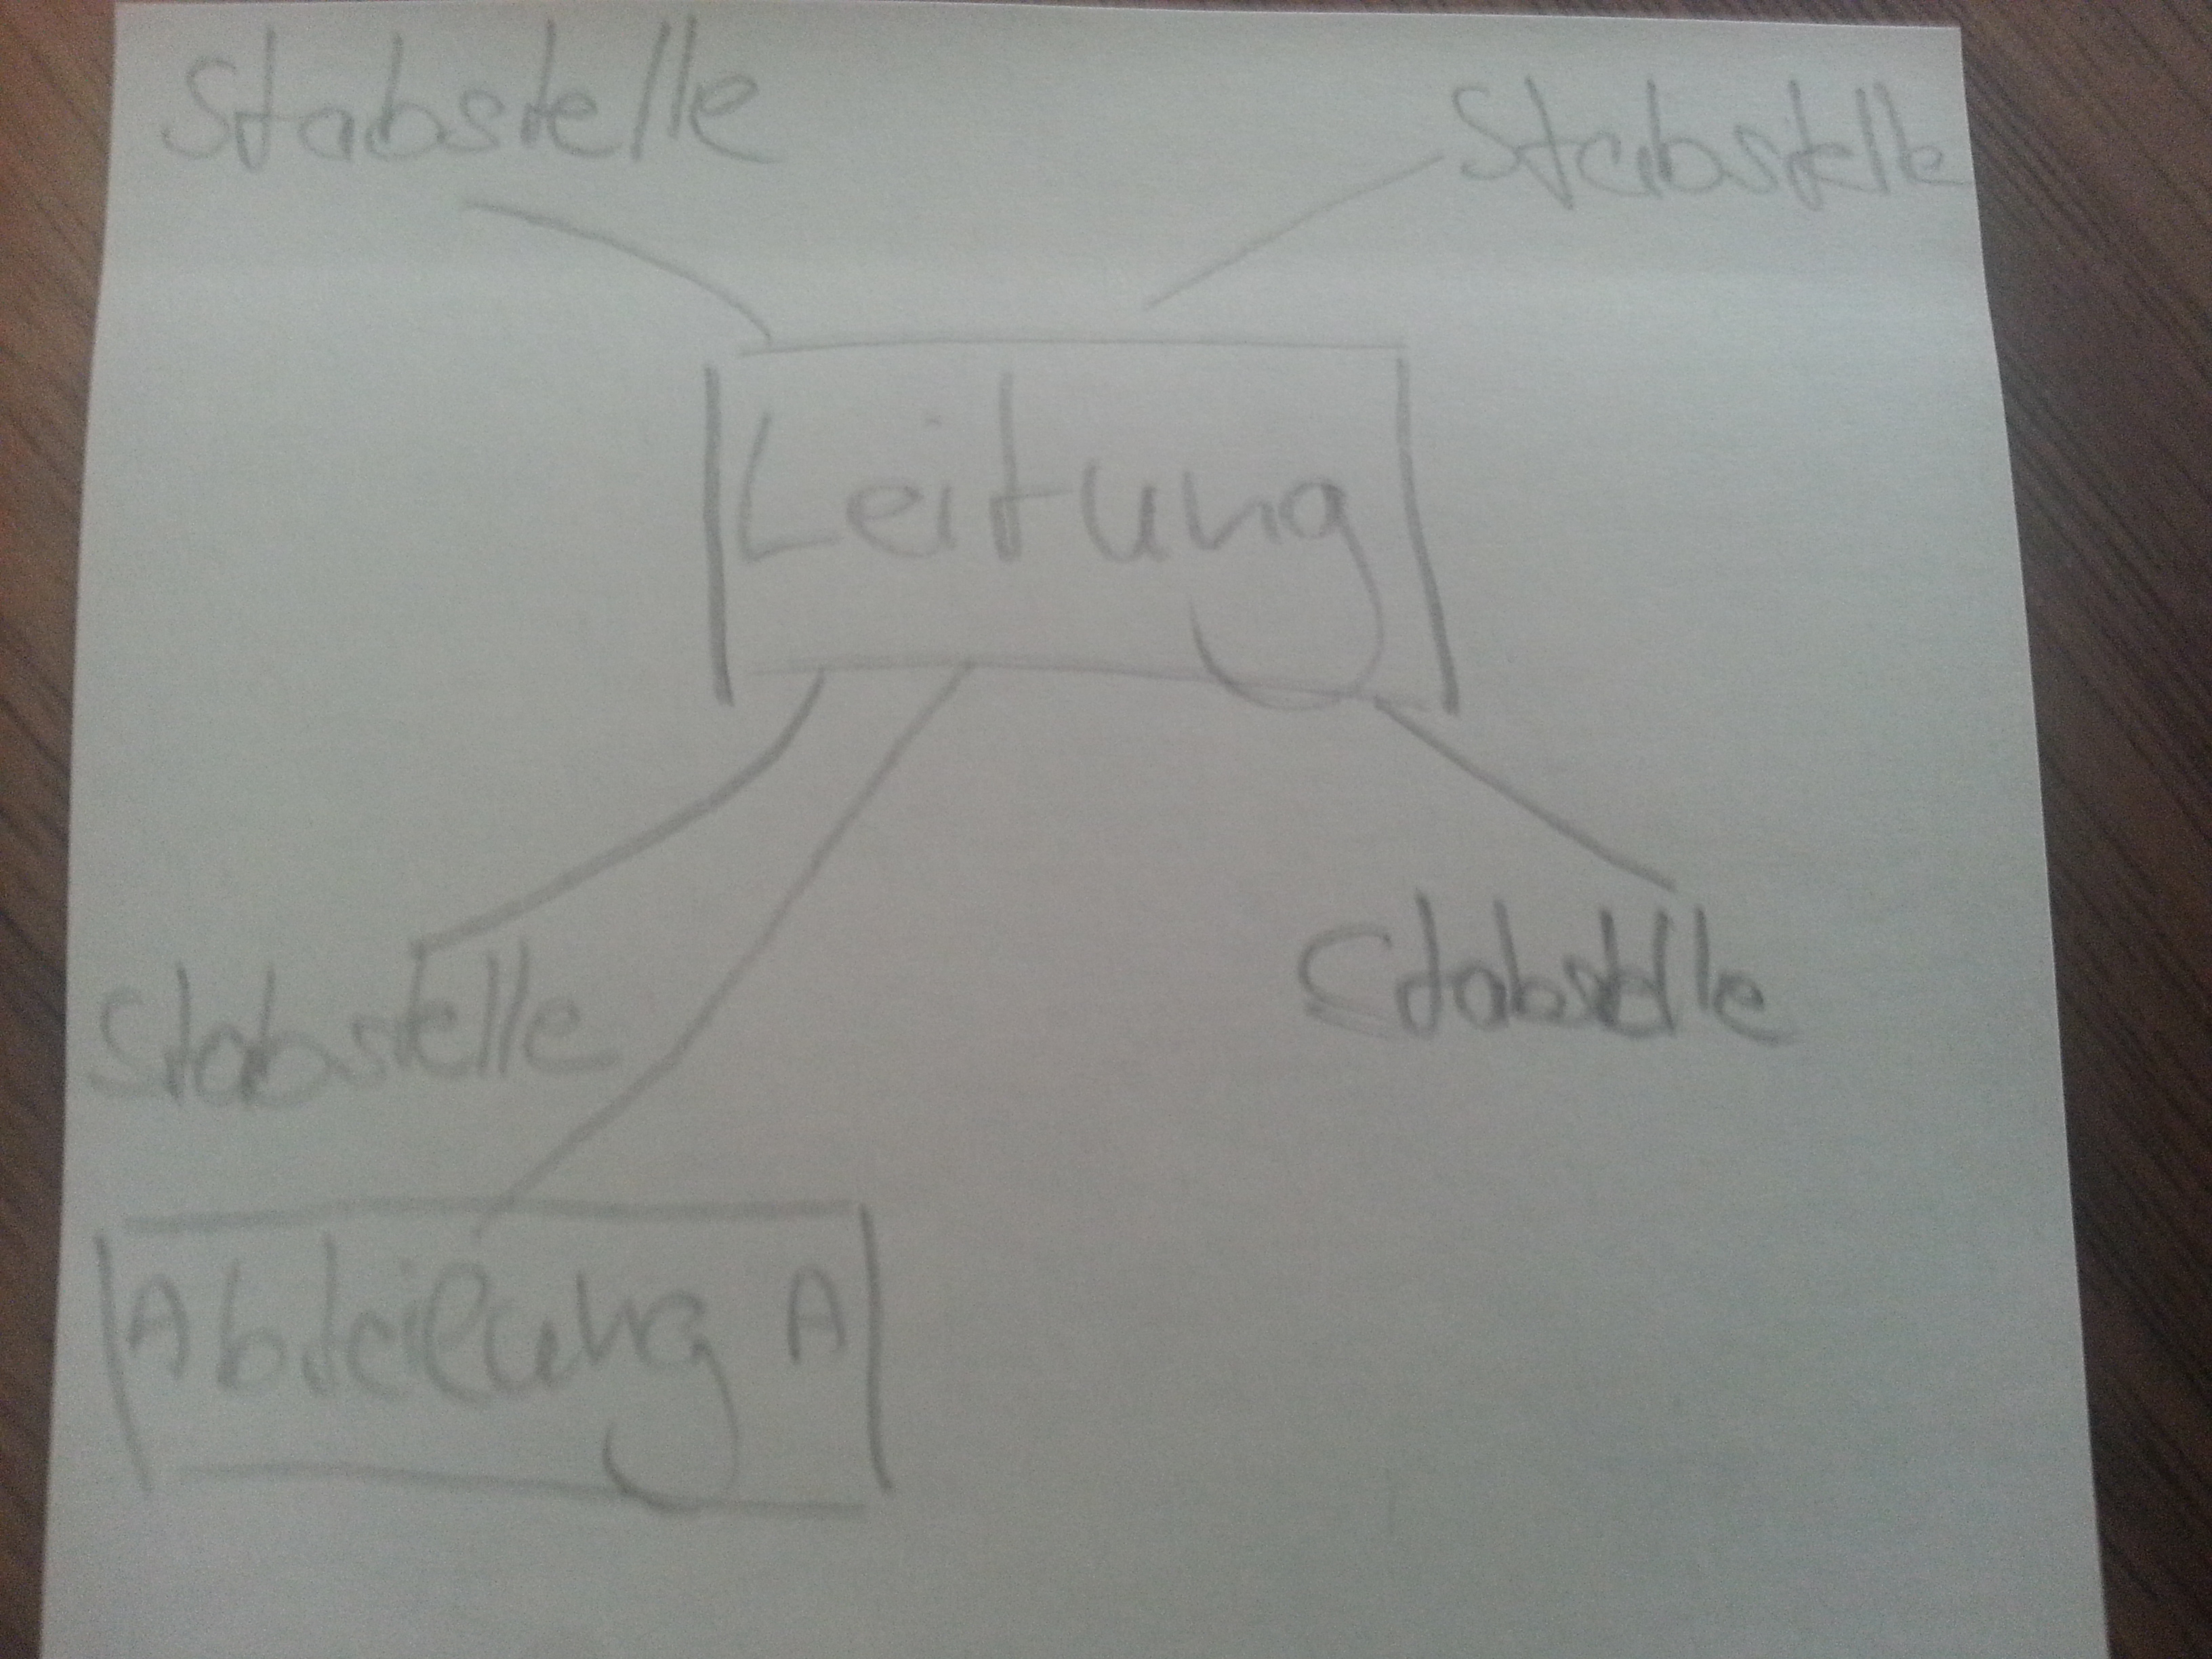 Stabstelle
Stabstelle
Leitung
Stabstelle
Stabstelle
Abteilung A